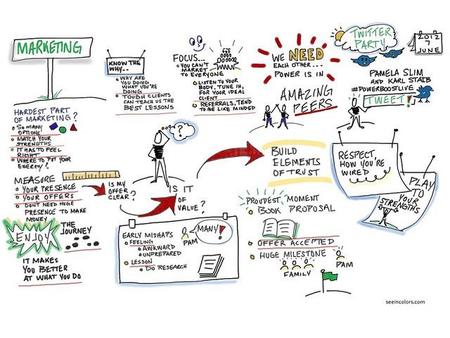 MARKETING
HARDEST PART
OF MARKETING?
SO MANY
OPTIONS
MATCH YOUR
STRENGTHS
IT HAS TO FEEL
RIGHT
WHERE TO PUT YOUR
ENERGY?
MEASURE
YOUR PRESENCE
YOUR OFFERS
DON'T NEED HUGE
PRESENCE TO MAKE
MONEY
ENJOY
THE
JOURNEY
IT MAKES
YOU BETTER
AT WHAT YOU DO
KNOW THE
WHY...
WHY ARE
YOU DOING
WHAT YOU'RE
DOING
TOUGH CLIENTS
CAN TEACH US THE
BEST LESSONS
IS MY
OFFER
CLEAR?
?
IS IT
OF
VALUE?
EARLY MISHAPS
FEELING
AWKWARD
UNPREPARED
LESSON
DO RESEARCH
PAM
MANY!
FOCUS...
YOU CAN'T
MARKET
TO EVERYONE
LISTEN TO YOUR
BODY, TUNE IN,
FOR YOUR IDEAL
CLIENT
REFERRALS, TEND
TO BE LIKE MINDED
WE NEED
EACH OTHER...
POWER IS IN
AMAZING
PEERS
BUILD
ELEMENTS
OF TRUST
PROUDEST MOMENT
BOOK PROPOSAL
OFFER ACCEPTED
HUGE MILESTONE
PAM
FAMILY
TWITTER
PARTY
2012
7
JUNE
PAMELA SLIM
AND KARL STAIB
#POWERBOOSTLIVE
TWEET!
RESPECT,
HOW YOU'RE
WIRED
PLAY
TO
YOUR
STRENGTHS
seeincolors.com